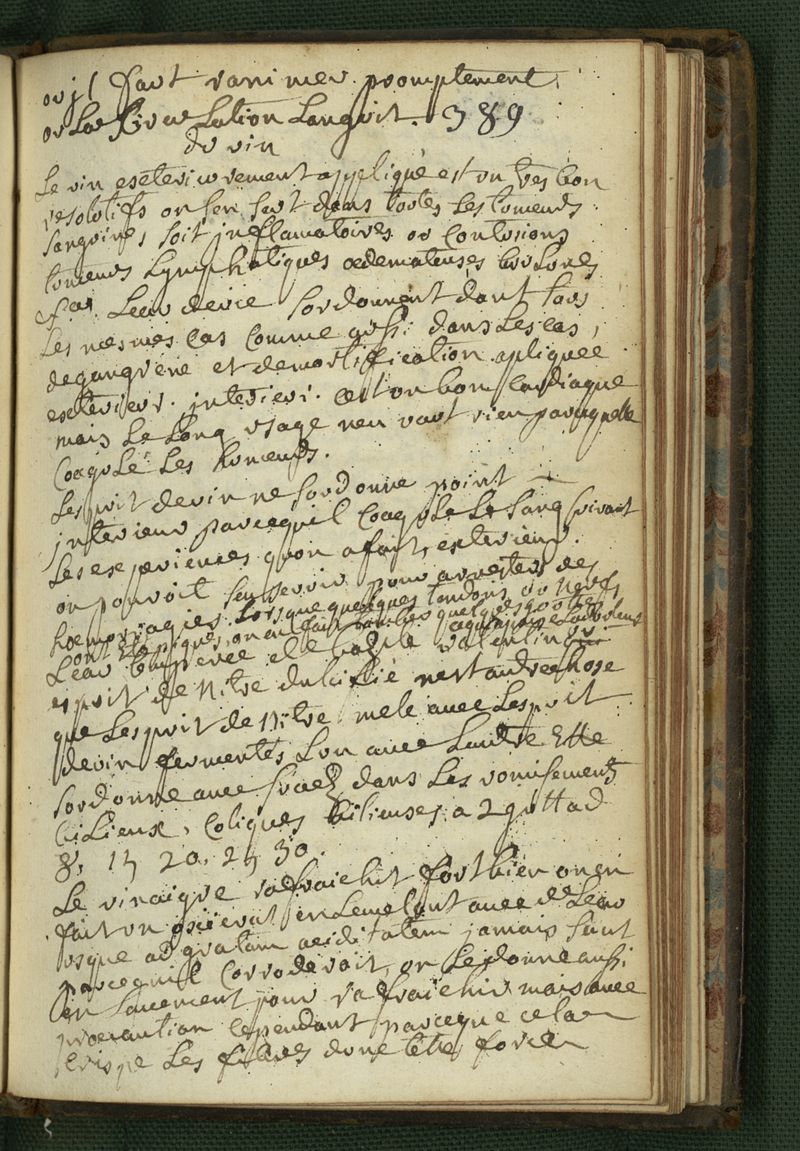 ou jl faut ranimer promptement
ou La Circulation Languit. 389
du vin
Le vin exterieurement appliqué est un tres bon
resolutifs on sen sert dans toutes Les tumeurs
sanguines, soit jnflamatoires ou Contusions
tumeurs Lymphatiques œdemateuses
Leau devie sordonnent dant tous
Les mesmes cas Comme aussi dans Les cas,
degangrene et demortification apliquée
exterieur. jnterieur. cest un bon Cardiaque
mais Le Long usage nen vaut rien parcequelle
Coagule Les humeurs.
Lesprit devin ne sordonne point
jnterieur parcequil Coagule Le sang suivant
Les experiences quon a fait, exterieur.
on pouroit sen servir pour arrester des
hœmoragies Lorsque quelques tendons ou nerfs
ont eté piqués, on
Leau temperée
esprit de Nitre dulcifié nest autre chose
que Lesprit de Nitre mele avec Lesprit
devin fermentés Lun avec Lautre Elle
sordonne avec succez dans Les vomissements
bilieux, Coliques bilieuses a 2 guttad
8, 15 20, 25 30.
Le vinaigre rafraichit fort bien on en
fait un oxicrat en Lemelant avec de Leau
usque ad gratam aciditatem jamais seul
parcequil Corroderoit, on Ledonne aussi
en Lavement pour rafraichir mais avec
precaution cependant parceque cela
crispe Les fibres done